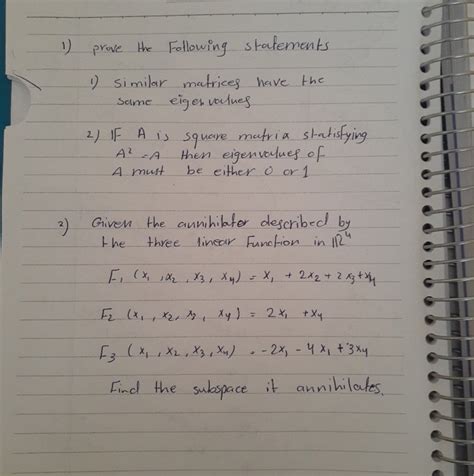 1) prove the Following statements
1) similar matrices have the
same eigenvalues
2) IF A is square matrix statisfying
A² = A then eigenvalues of
A must be either 0 or 1
2) Given the annihilator described by
the three linear Function in ℝ⁴
F₁ (x₁, x₂, x₃, x₄) = x₁ + 2x₂ + 2x₃ + x₄
F₂ (x₁, x₂, x₃, x₄) = 2x₁ + x₄
F₃ (x₁, x₂, x₃, x₄) = -2x₁ - 4x₁ + 3x₄
Find the subspace it annihilates.